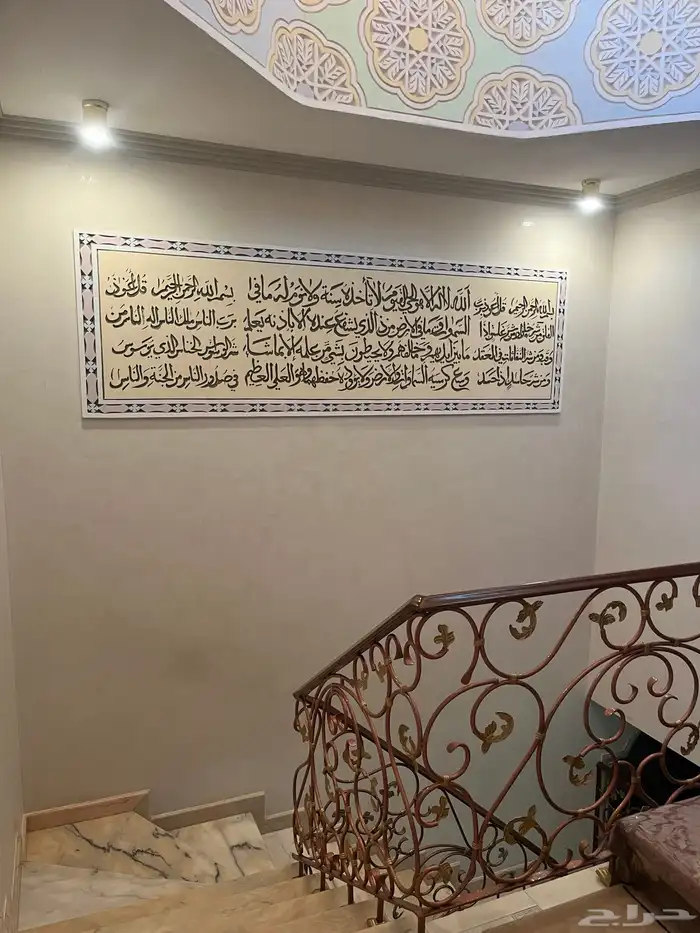 بسم الله الرحمن الرحيم قل أعوذ برب
الفلق من شر ما خلق ومن شر غاسق إذا
وقب ومن شر النفاثات في العقد
ومن شر حاسد إذا حسد
الله لا إله إلا هو الحي القيوم لا تأخذه سنة ولا نوم له ما في
السموات وما في الأرض من ذا الذي يشفع عنده إلا بإذنه يعلم
ما بين أيديهم وما خلفهم ولا يحيطون بشيء من علمه إلا بما شاء
وسع كرسيه السموات والأرض ولا يؤده حفظهما وهو العلي العظيم
بسم الله الرحمن الرحيم قل أعوذ
برب الناس ملك الناس إله الناس من
شر الوسواس الخناس الذي يوسوس
في صدور الناس من الجنة والناس
حراج